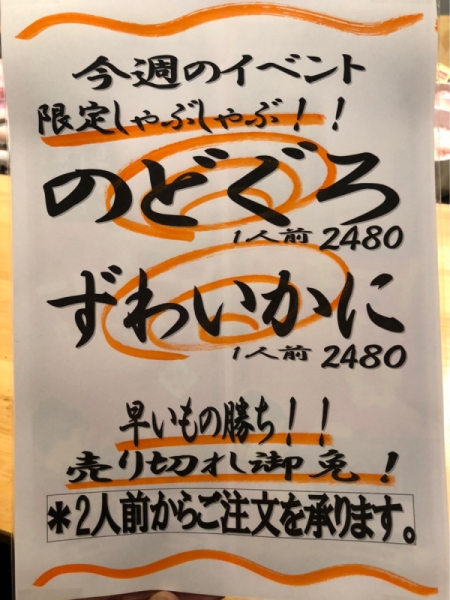 今週のイベント
限定しゃぶしゃぶ！！
のどぐろ
1人前 2480
ずわいかに
1人前 2480
早いもの勝ち！！
売り切れ御免！
＊2人前からご注文を承ります。